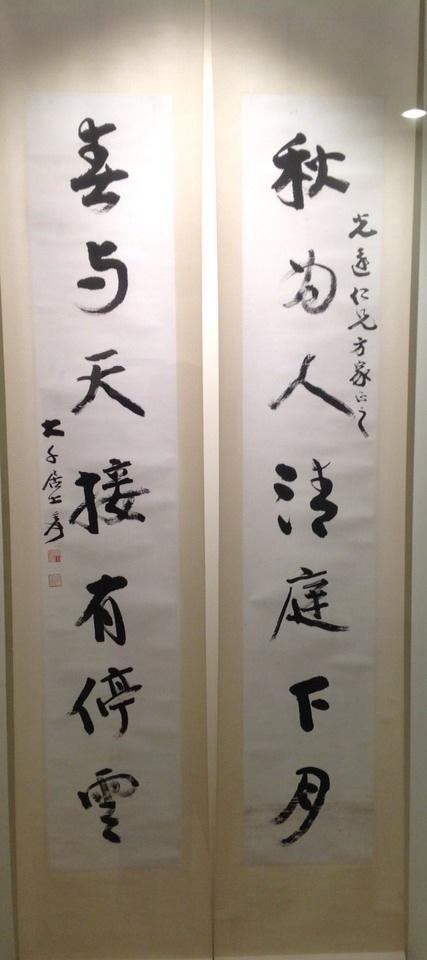 秋为人清庭下月
光遠仁兄方家正之
春与天接有停雲
大千居士爰